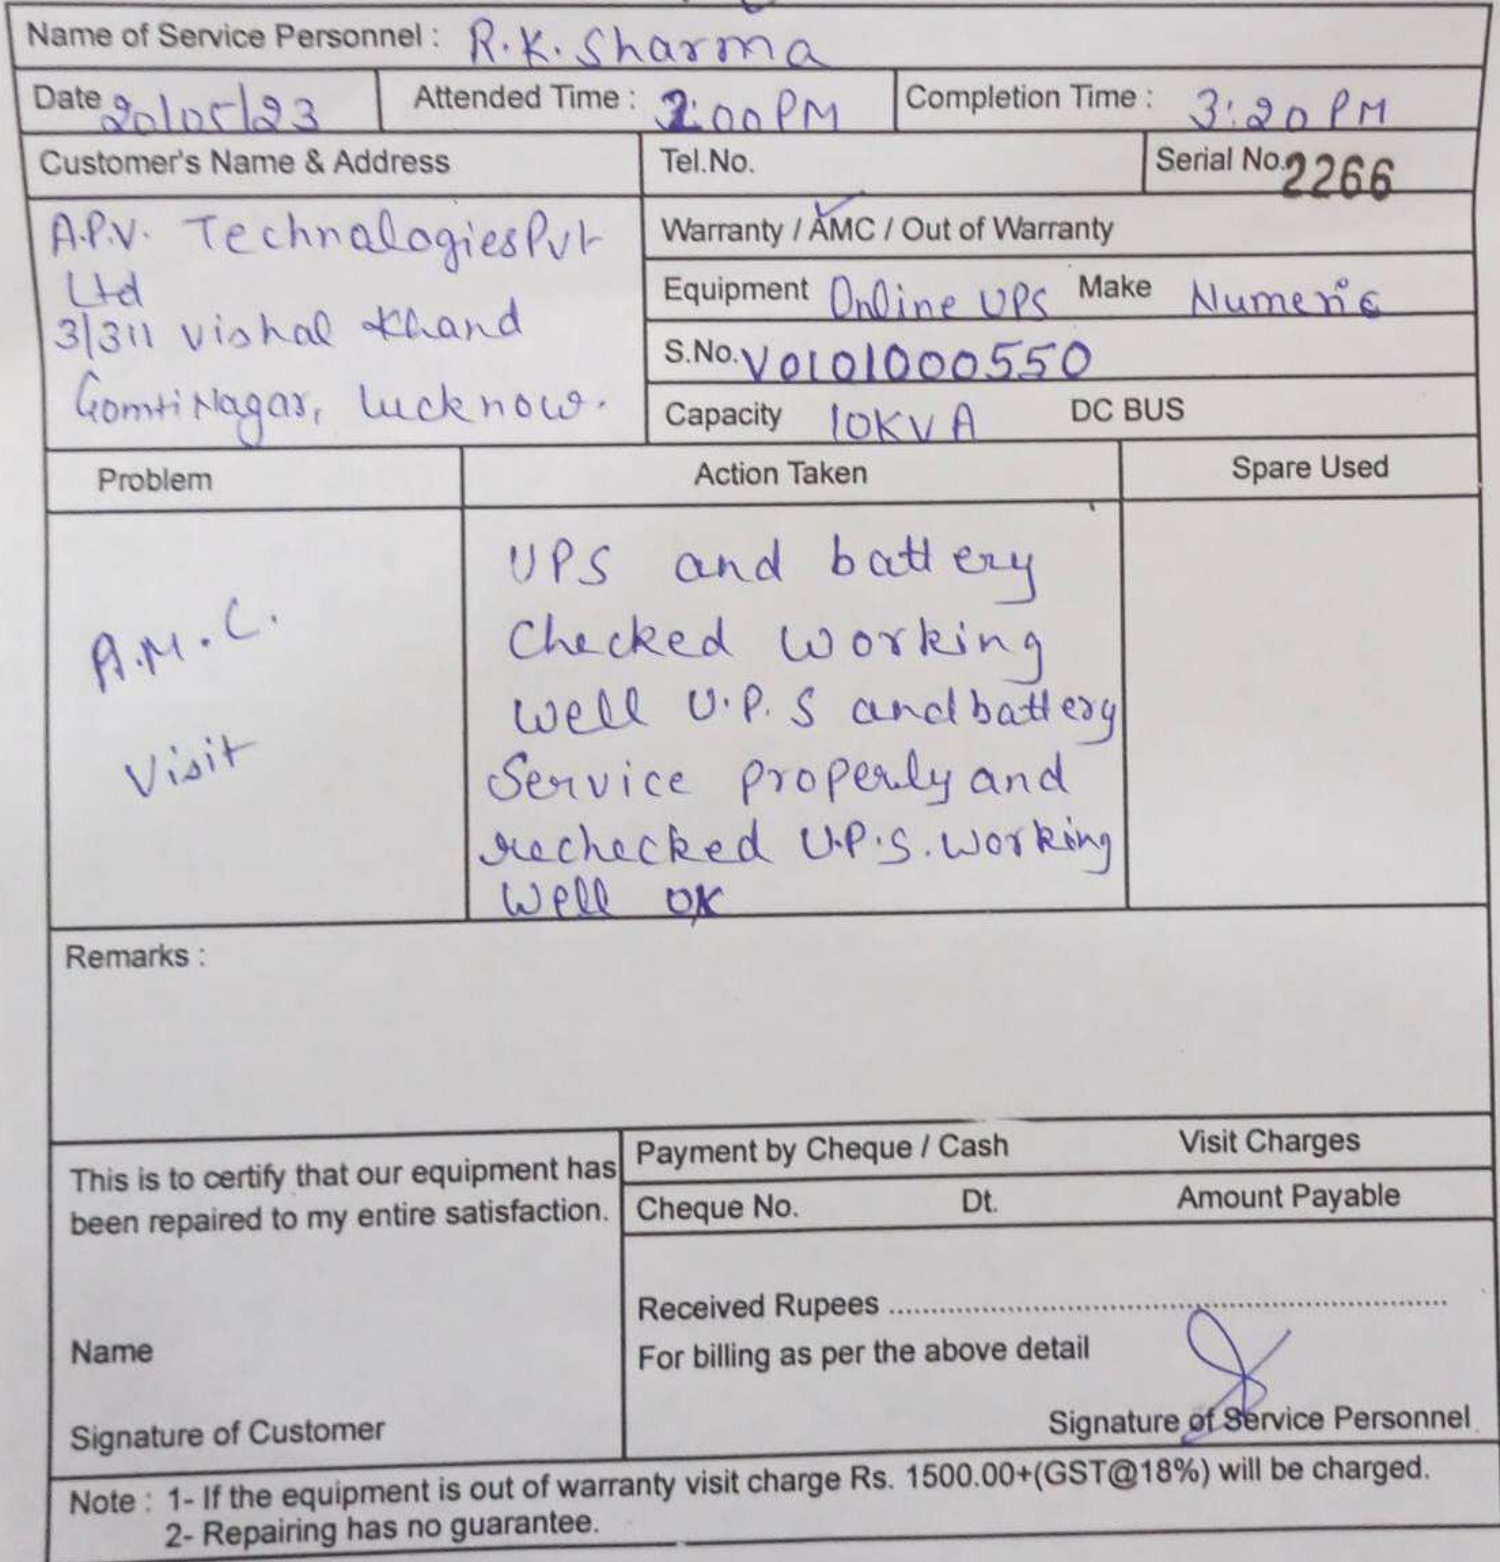 Name of Service Personnel : R.K. Sharma
Date 20/05/23 Attended Time : 2:00 PM Completion Time : 3:20 PM
Customer's Name & Address Tel.No. Serial No. 2266
A.P.V. Technalogies Pvt
Ltd
3/311 Vishal Khand
Gomti Nagar, Lucknow.
Warranty / AMC / Out of Warranty
Equipment Online UPS Make Numeric
S.No. V0101000550
Capacity 10KVA DC BUS
Problem Action Taken Spare Used
A.M.C.
Visit
UPS and battery
Checked working
well U.P.S and battery
Service properly and
rechecked U.P.S. working
Well OK
Remarks :
This is to certify that our equipment has
been repaired to my entire satisfaction.
Name
Signature of Customer
Payment by Cheque / Cash Visit Charges
Cheque No. Dt. Amount Payable
Received Rupees ..........................................................................
For billing as per the above detail
Signature of Service Personnel
Note : 1- If the equipment is out of warranty visit charge Rs. 1500.00+(GST@18%) will be charged.
2- Repairing has no guarantee.